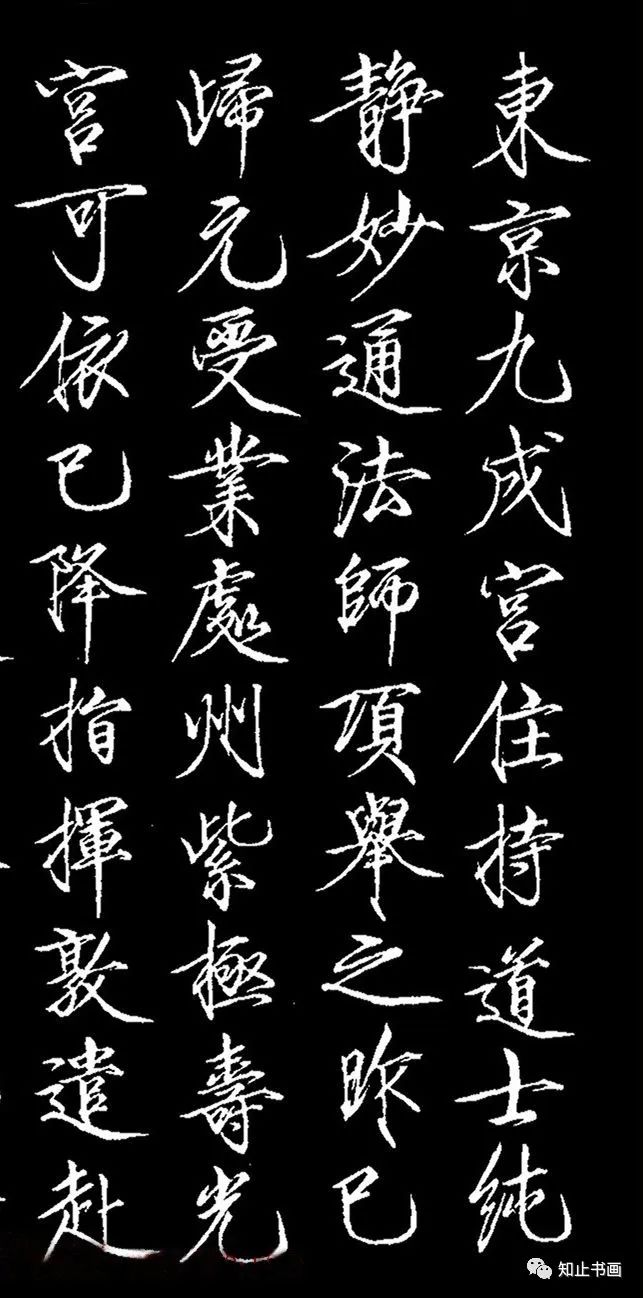 東京九成宮住持道士純
静妙通法師項舉之昨已
歸元受業處州紫極壽光
宮可依已降指揮敦遣赴
知止书画